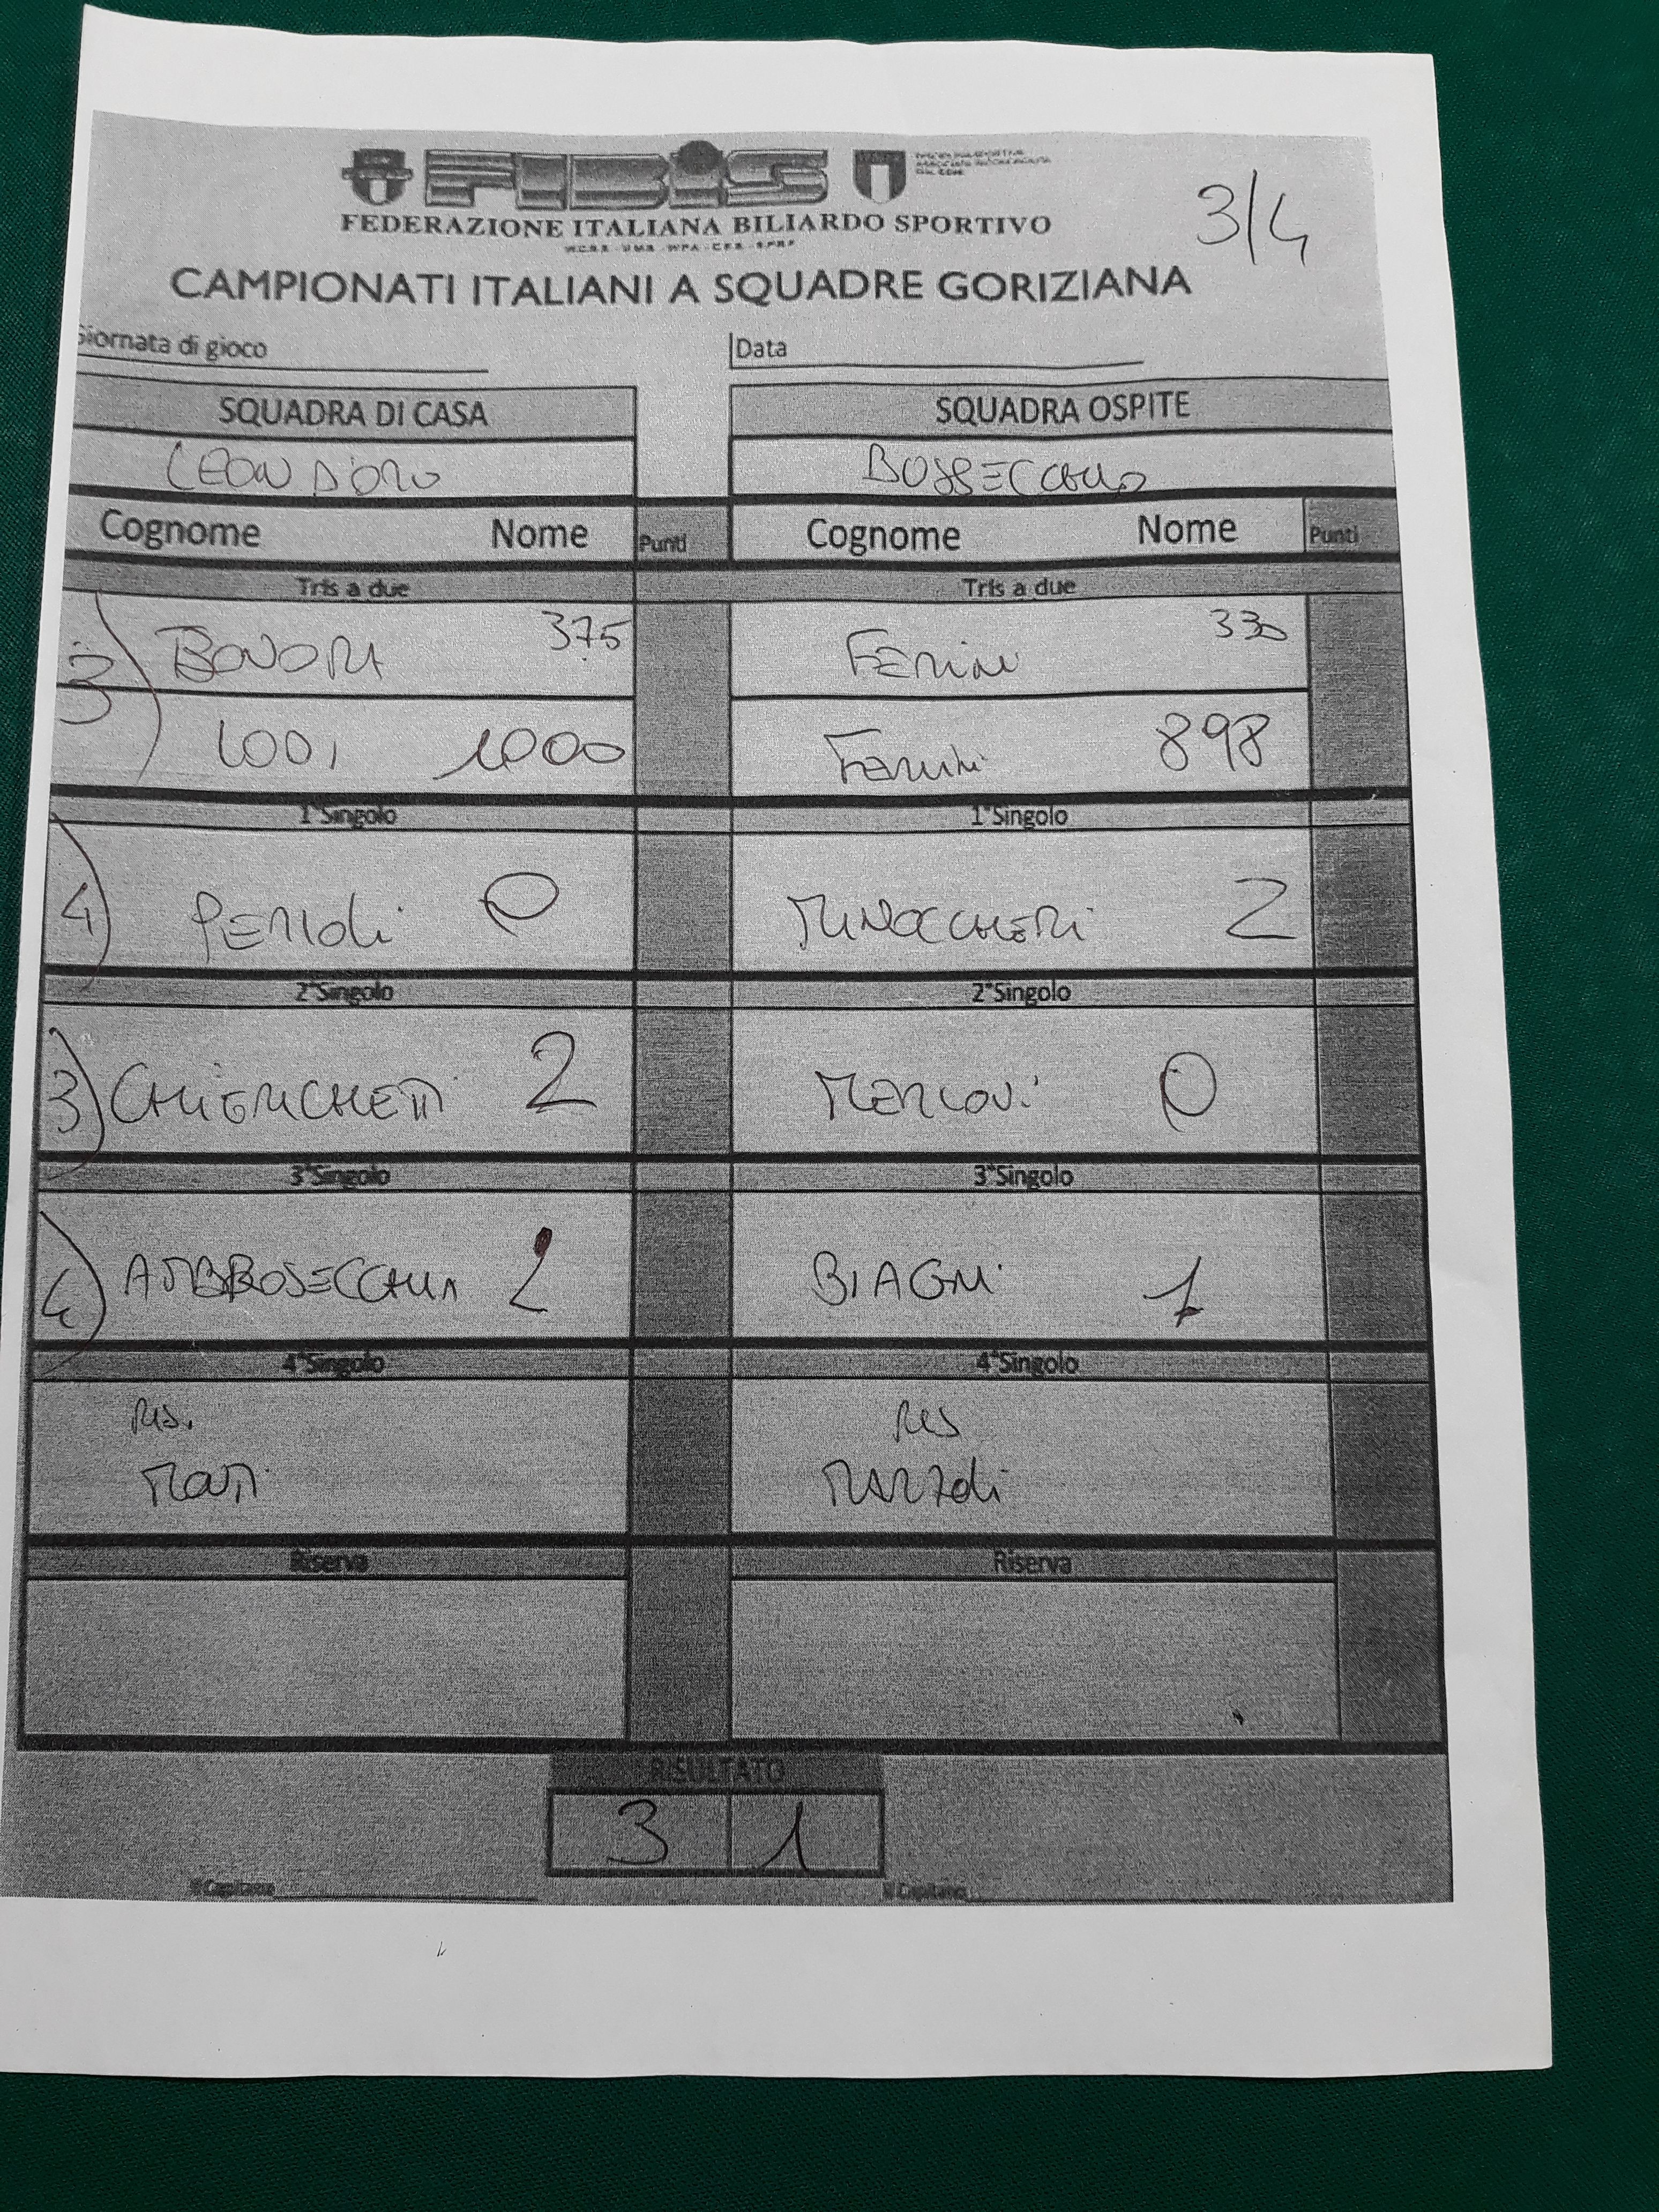 FIBiS
3/4
FEDERAZIONE ITALIANA BILIARDO SPORTIVO
CAMPIONATI ITALIANI A SQUADRE GORIZIANA
Giornata di gioco Data
SQUADRA DI CASA SQUADRA OSPITE
LEON D'ORO
Cognome Nome Punti Cognome Nome Punti
Tris a due Tris a due
BONORA 375 330
LODI 1000 898
1°Singolo 1°Singolo
4) PERIOLI 0 MINOCCHERI 2
2°Singolo 2°Singolo
3) CHIERCHETTI 2 MERLONI 0
3°Singolo 3°Singolo
4) 2 BIAGINI 1
4°Singolo 4°Singolo
RIS. RIS
MARZOLI
Riserva Riserva
RISULTATO
3 1
Il Capitano Il Capitano